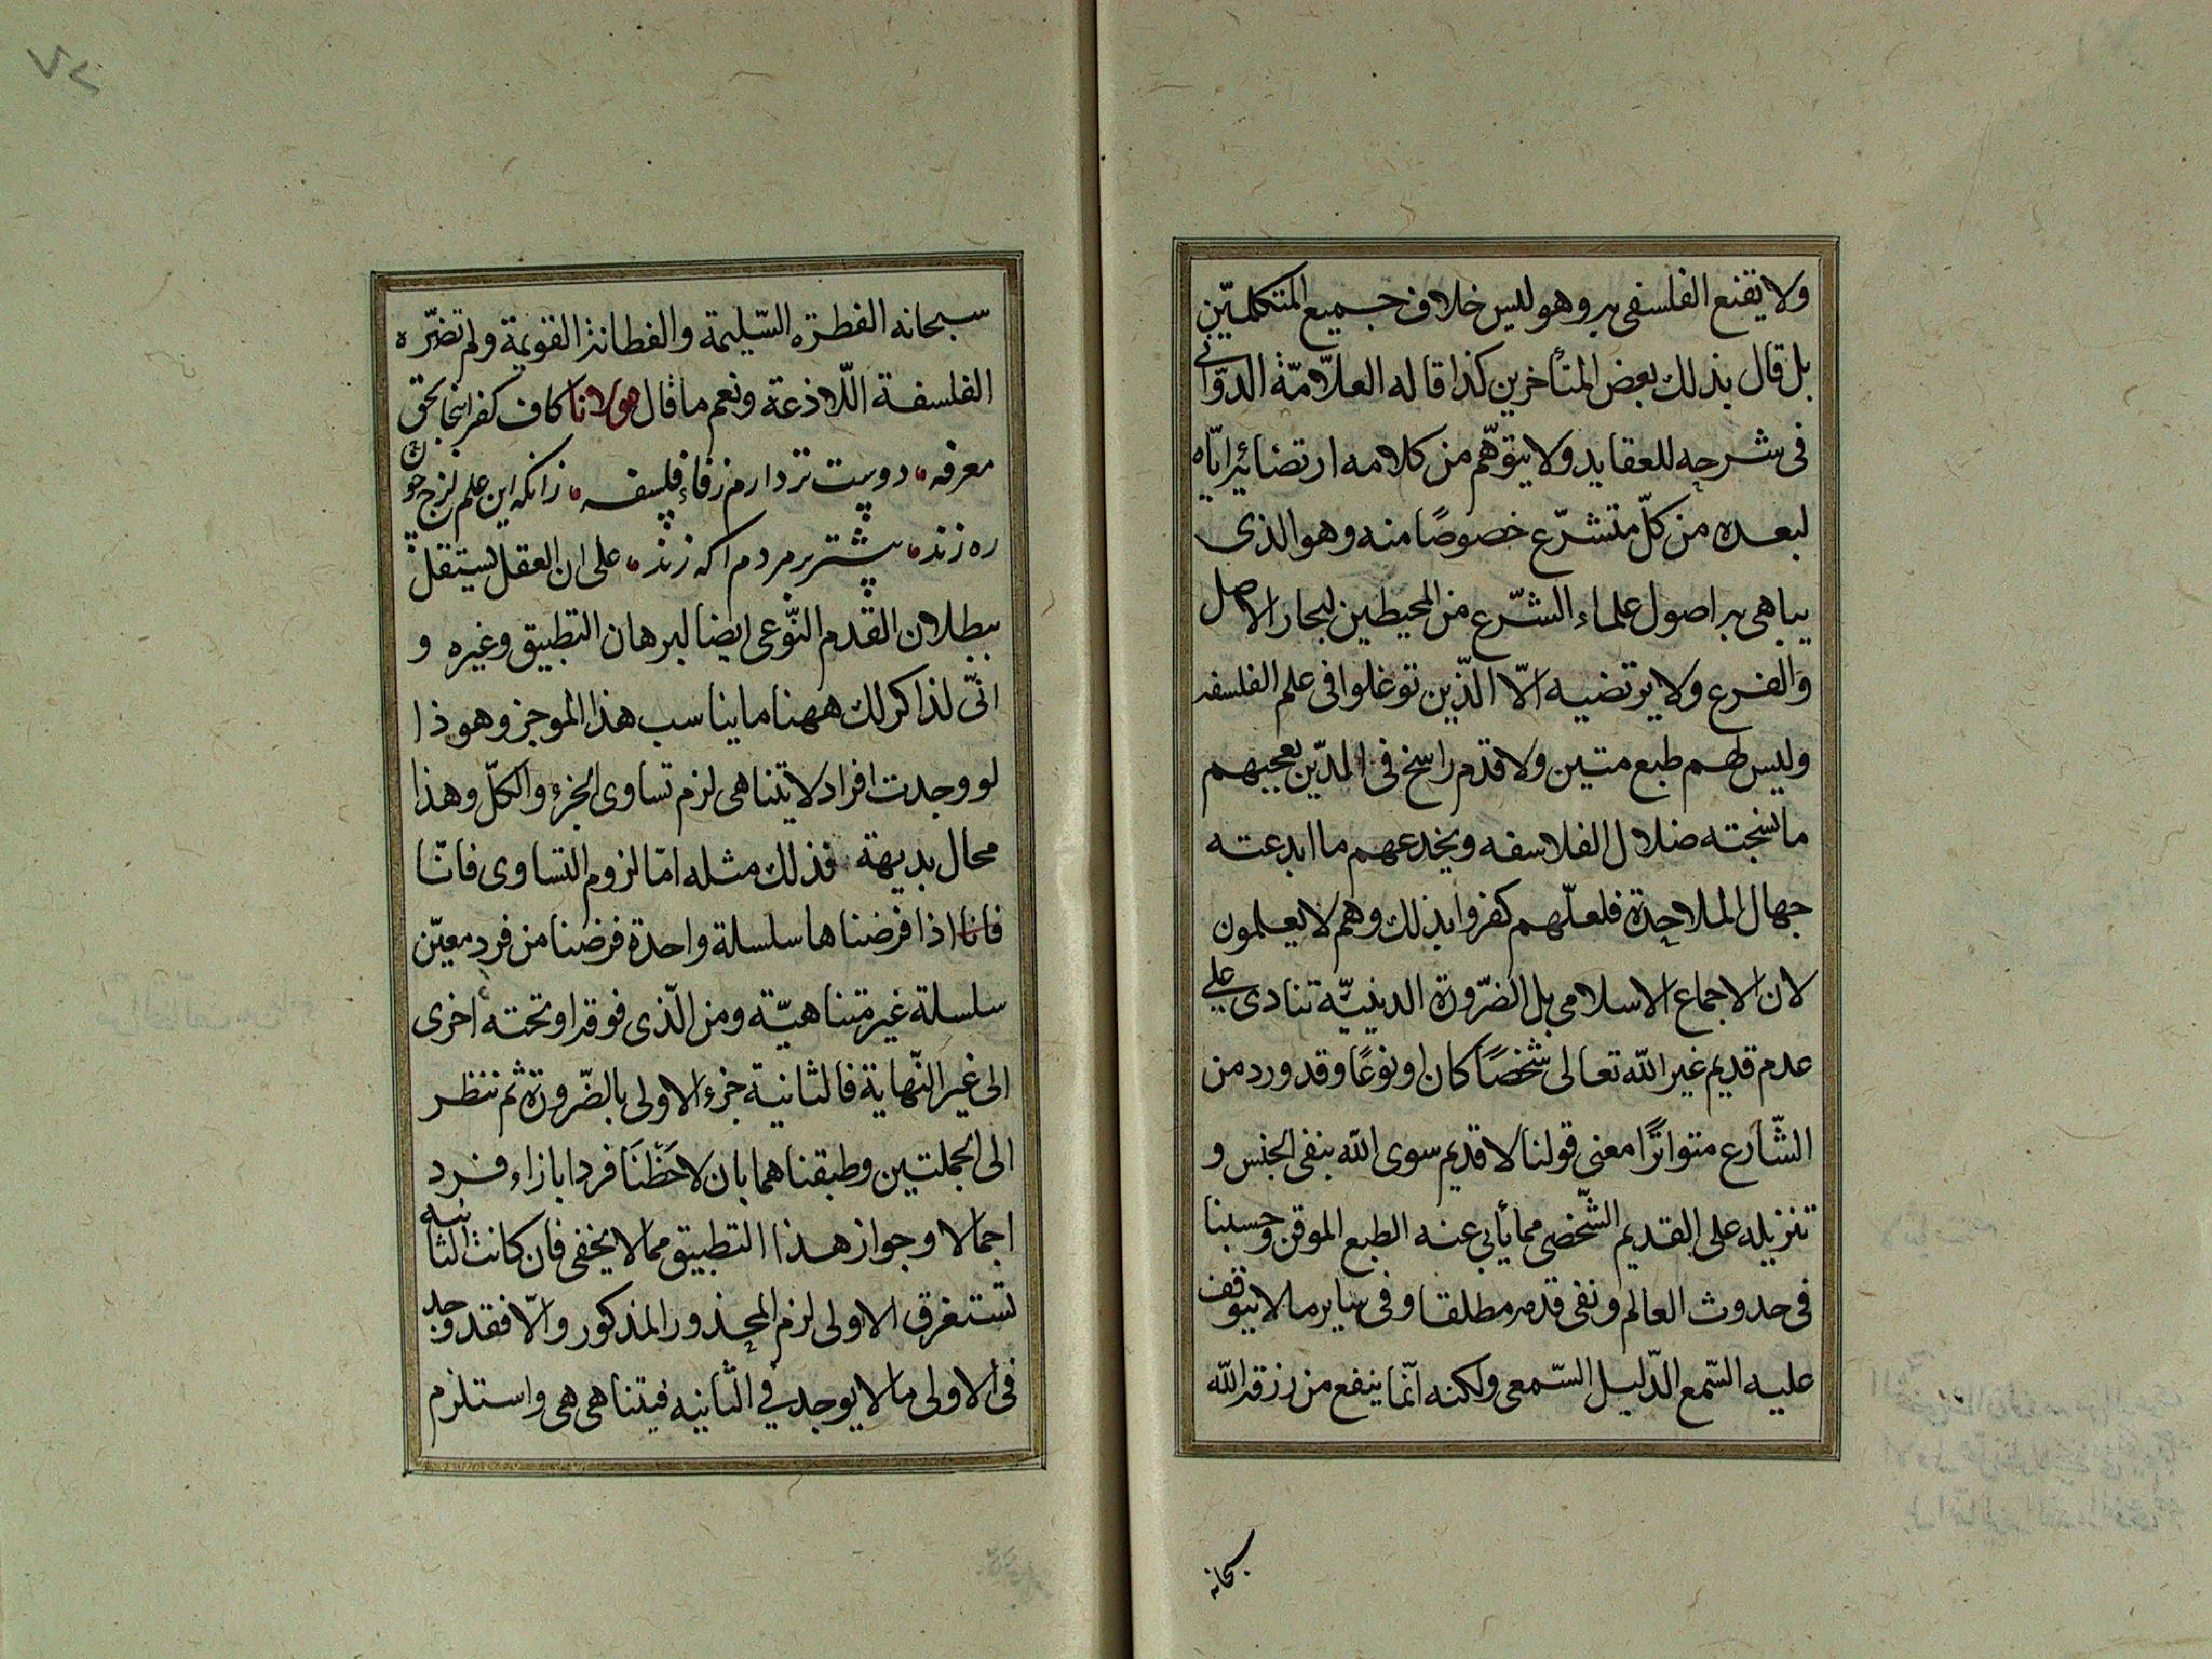 ولا يقنع الفلسفى به وهو ليس خلاف جميع المتكلمّين
بل قال بذلك بعض المتأخرين كذا قاله العلّامّة الدوّانى
فى شرحه للعقايد ولا يتوهّم من كلامه ارتضائه ايّاه
لبعده من كلّ متشرّع خصوصًا منه وهو الذى
يباهى به اصول علماء الشّرع من المحيطين لبحار الاصل
والفرع ولا يرتضيه الّا الّذين توغلوا فى علم الفلسفه
وليس لهم طبع متين ولا قدم راسخ فى الدّين يعجبهم
ما نسجته ضلال الفلاسفه ويخدعهم ما ابدعته
جهال الملاحدة فلعلّهم كفروا بذلك وهم لا يعلمون
لان الاجماع الاسلامى بل الضّرورة الدينيّة تنادى على
عدم قديم غير الله تعالى شخصًا كان او نوعًا وقد ورد من
الشّارع متواترًا معنى قولنا لا قديم سوى الله بنفى الجنس و
تنزيله على القديم الشّخصى مما يأبى عنه الطبع الموقن وحسبنا
فى حدوث العالم ونفى قدمه مطلقا وفى ساير ما لا يتوقف
عليه السّمع الدّليل السّمعى ولكنه انّما ينفع من رزقه الله
سبحانه
٢٧
سبحانه الفطرة السّليمة والفطانة القويمة ولم تضرّه
الفلسفة اللّاذعة ونعم ما قال مولانا كاف كفر اينجا بحق
معرفه دوست تر دارم ز فاء فلسفه زانكه اين علم لزج چون
ره زند بيشتر بر مردم اكه زند على ان العقل يستقل
ببطلان القدم النّوعى ايضا لبرهان التطبيق وغيره و
انّى لذاكر لك ههنا ما يناسب هذا الموجز وهو ذا
لو وجدت افراد لا يتناهى لزم تساوى الجزء والكلّ وهذا
محال بديهة فذلك مثله امّا لزوم التساوى فانّا
فانا اذا فرضناها سلسلة واحدة فرضنا من فرد معيّن
سلسلة غير متناهيّة ومن الّذى فوقه او تحته اخرى
الى غير النّهاية فالثانية جزء الاولى بالضّرورة ثم ننظر
الى الجملتين وطبقناهما بان لاحَظْنَا فردا بازاء فرد
اجمالا وجواز هذا التطبيق مما لا يخفى فان كانت الثانيه
تستغرق الاولى لزم المحذور المذكور والّا فقد وجد
فى الاولى ما لا يوجد فى الثّانيه فيتناهى هى واستلزم